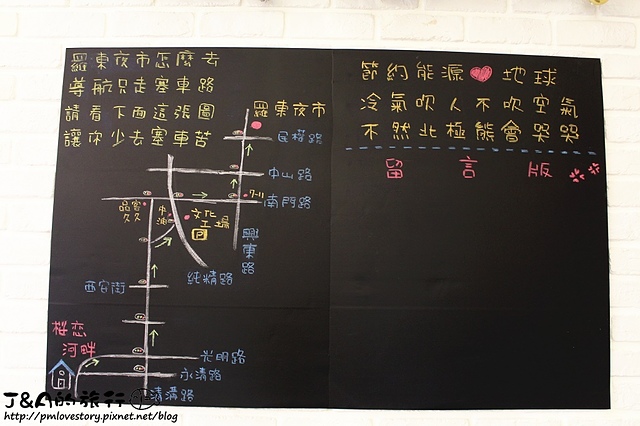 羅東夜市怎麼去
導航只走塞車路
請看下面這張圖
讓你少去塞車苦
羅東夜市
民權路
中山路
7-11
南門路
品客久久
中油
文化工場
P
興東路
純精路
西安街
桜恋河畔
光明路
永清路
清溝路
節約能源 地球
冷氣吹人不吹空氣
不然北極熊會哭哭
留言版
J&A的旅行
http://pmlovestory.pixnet.net/blog